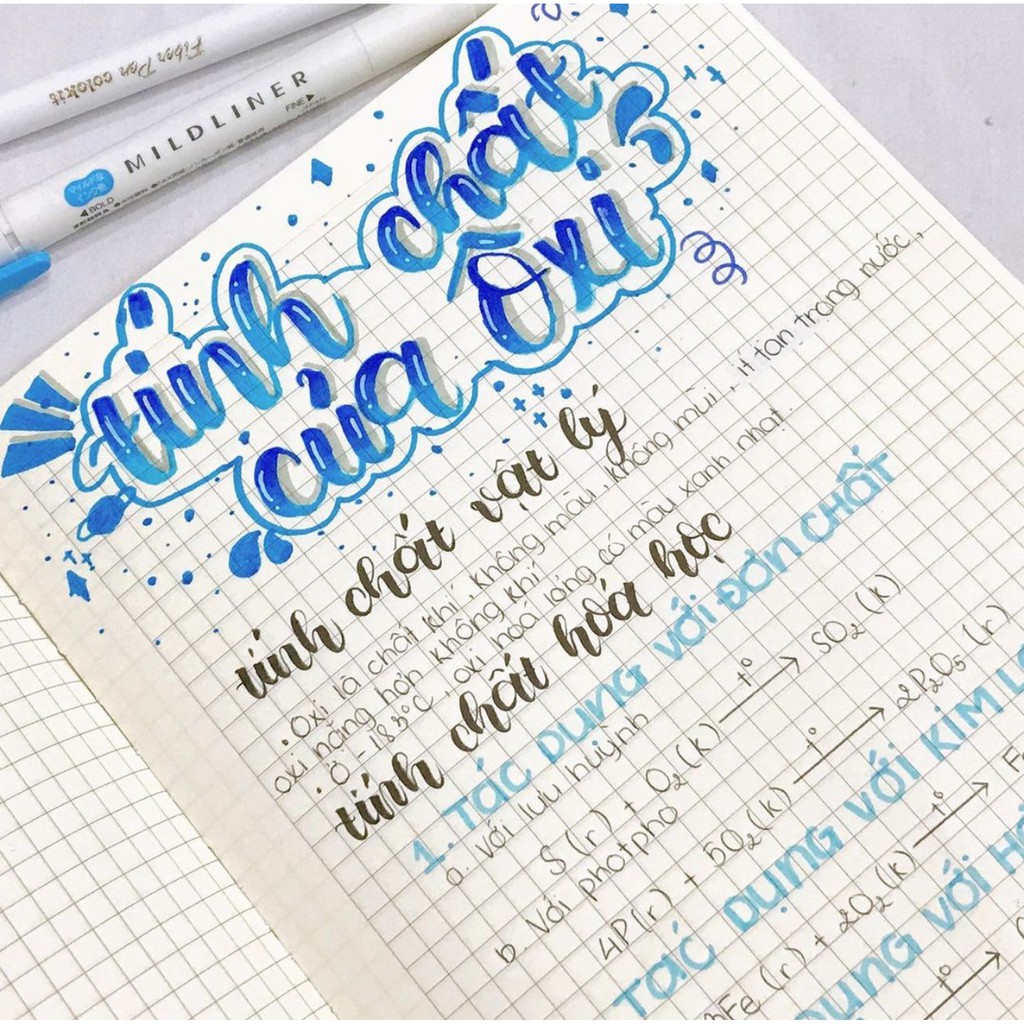 Fiber Pen colokit
MILDLINER
FINE ▶
◀ BOLD
ZEBRA
tính chất
của Ôxi
tính chất vật lý
. Oxi là chất khí, không màu, không mùi, ít tan trong nước,
oxi nặng hơn không khí
. Ở -183°C, oxi hoá lỏng có màu xanh nhạt.
tính chất hóa học
1. TÁC DỤNG VỚI ĐƠN CHẤT
a. Với lưu huỳnh
S(r) + O₂(k) —t°→ SO₂(k)
b. Với photpho
4P(r) + 5O₂(k) —t°→ 2P₂O₅(r)
TÁC DỤNG VỚI KIM
Fe(r) + 2O₂(k) —t°→ F
DỤNG VỚI
t°